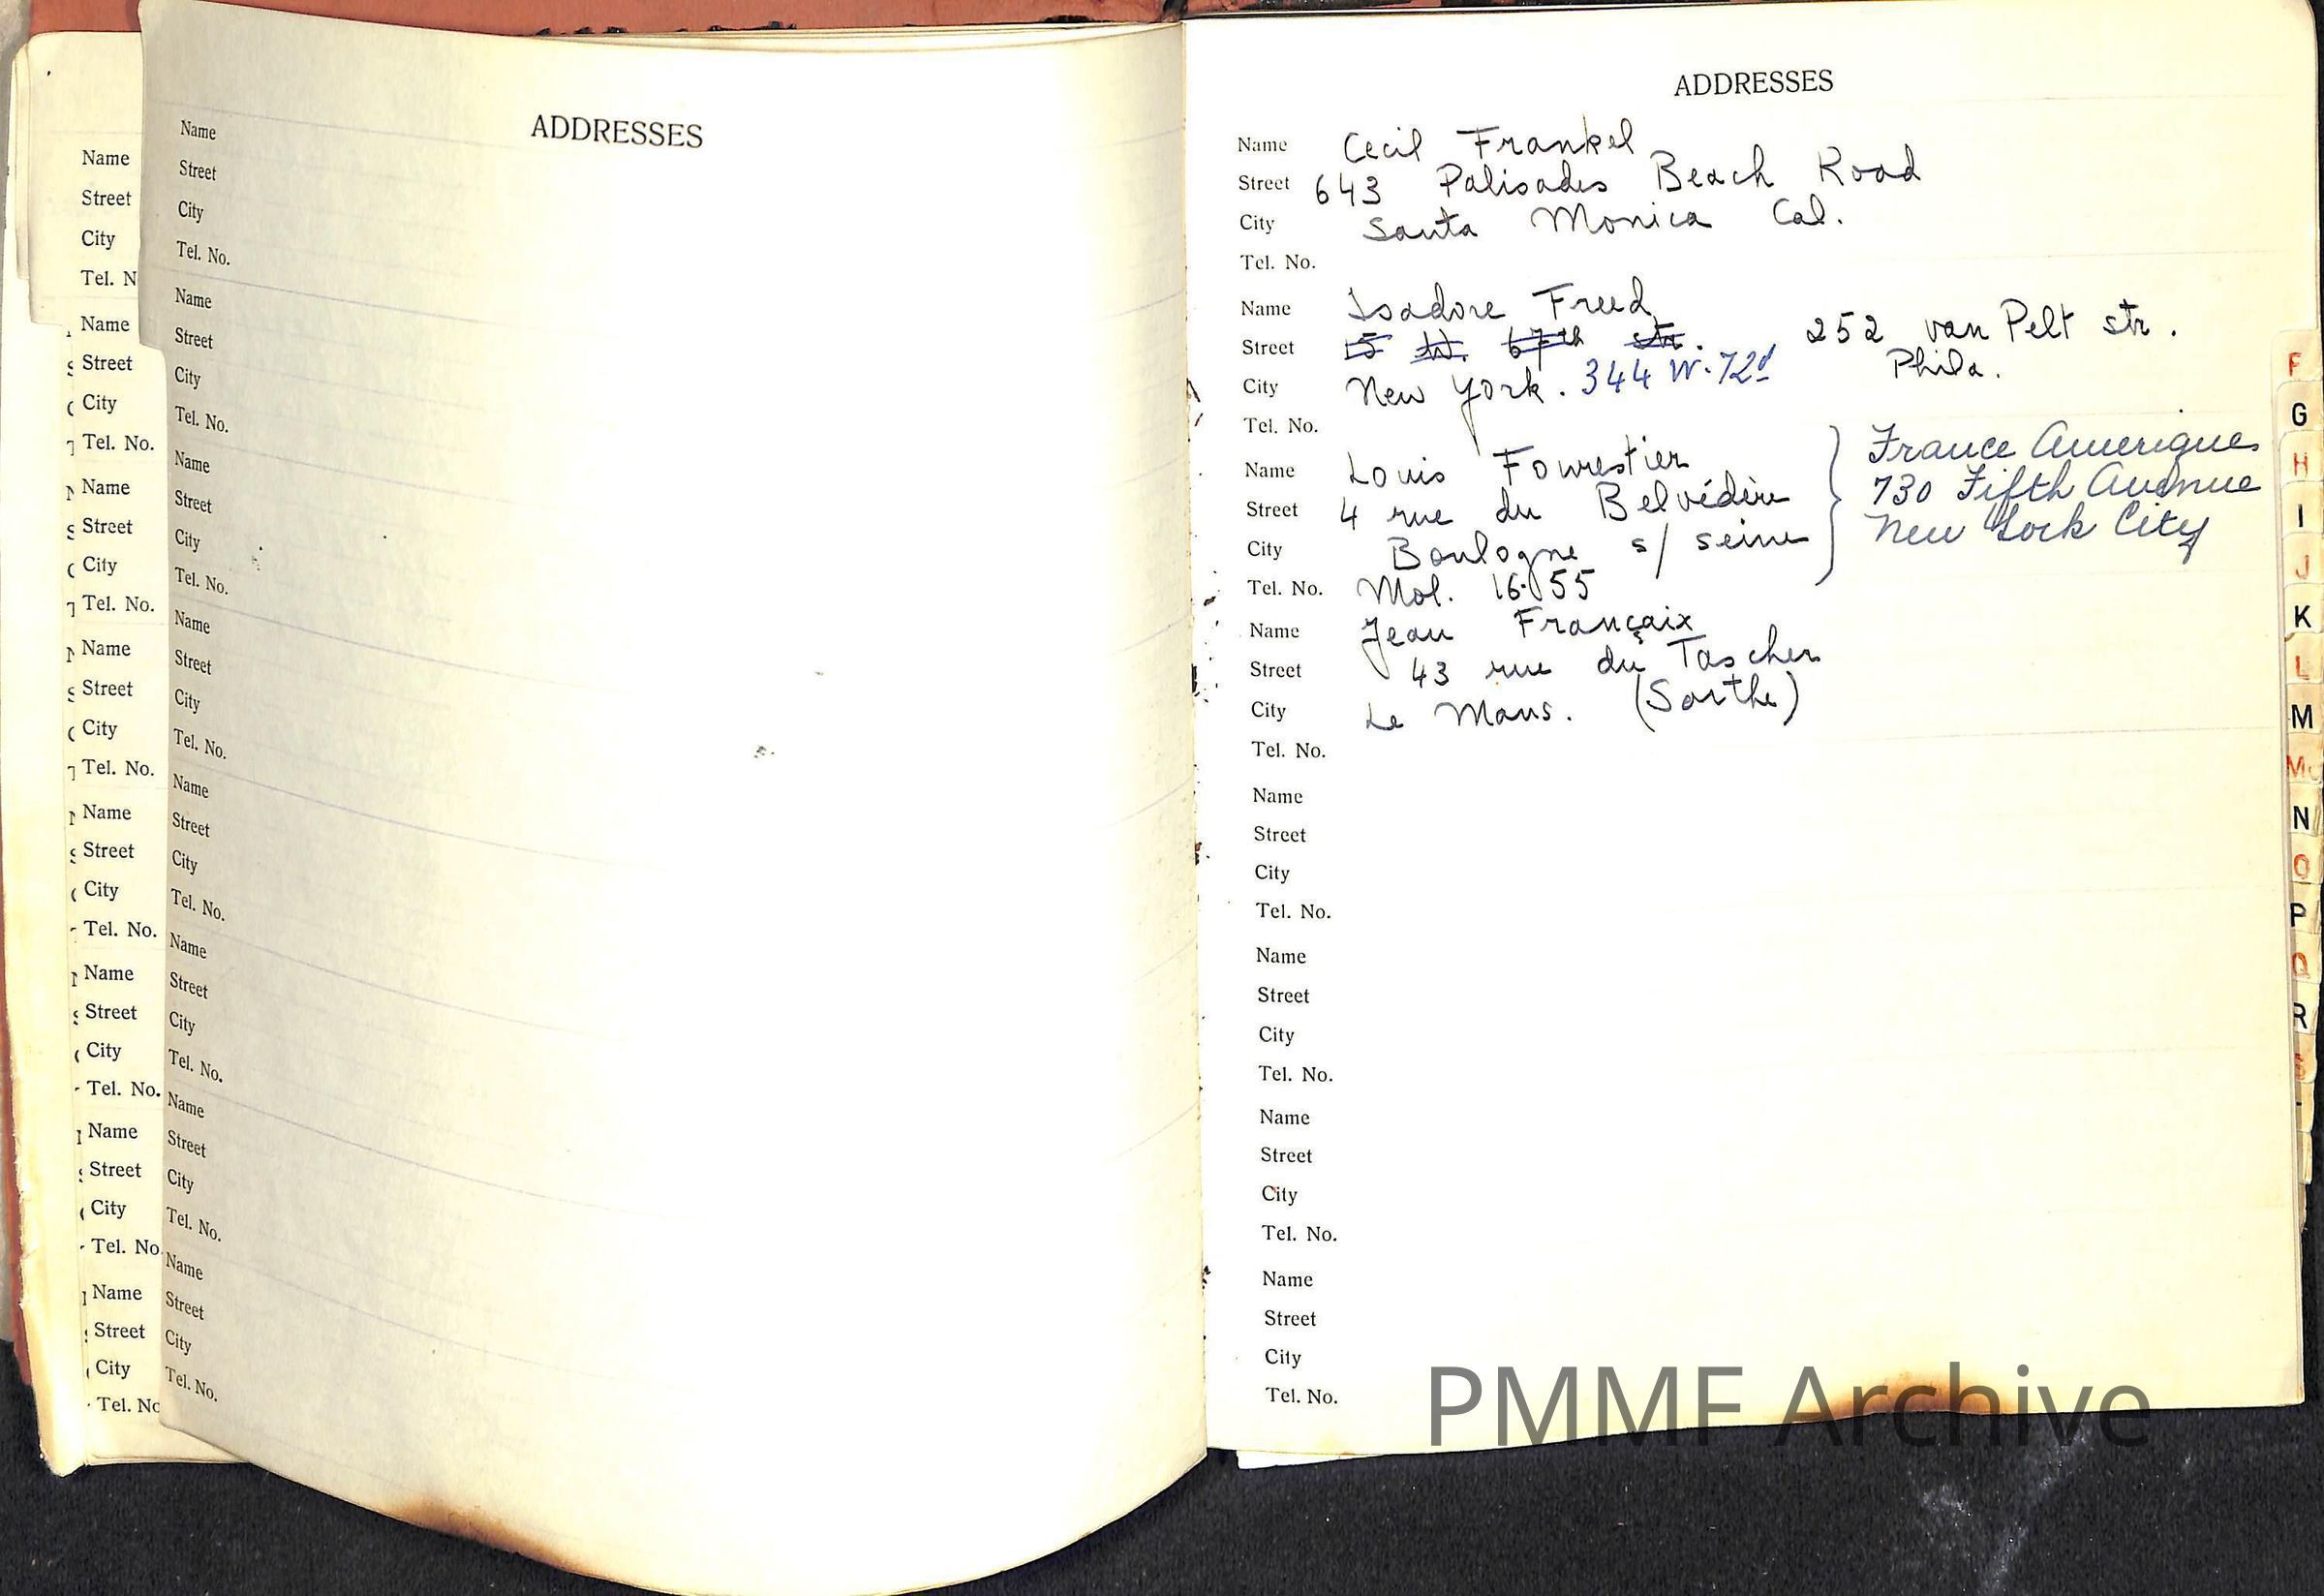 ADDRESSES
Name
Street
City
Tel. No.
Name
Street
City
Tel. No.
Name
Street
City
Tel. No.
Name
Street
City
Tel. No.
Name
Street
City
Tel. No.
Name
Street
City
Tel. No.
Name
Street
City
Tel. No.
Name
Street
City
Tel. No.
Name
Street
City
Tel. N
Name
Street
City
Tel. No.
Name
Street
City
Tel. No.
Name
Street
City
Tel. No.
Name
Street
City
Tel. No.
Name
Street
City
Tel. No.
Name
Street
City
Tel. No
Name
Street
City
Tel. No
ADDRESSES
Name Cecil Frankel
Street 643 Palisades Beach Road
City Santa Monica Cal.
Tel. No.
Name Isadore Freed
Street 15 W. 67th str. 252 van Pelt str.
City New York. 344 W. 72d Phila.
Tel. No.
Name Louis Fourestier } France Amerique
Street 4 rue du Belvédère 730 Fifth Avenue
City Boulogne s/ seine New York City
Tel. No. Mol. 16.55
Name Jean Françaix
Street 43 rue du Tascher
City Le Mans. (Sarthe)
Tel. No.
Name
Street
City
Tel. No.
Name
Street
City
Tel. No.
Name
Street
City
Tel. No.
Name
Street
City
Tel. No.
F
G
H
I
J
K
L
M
Mc
N
O
P
Q
R
S
PMMF Archive